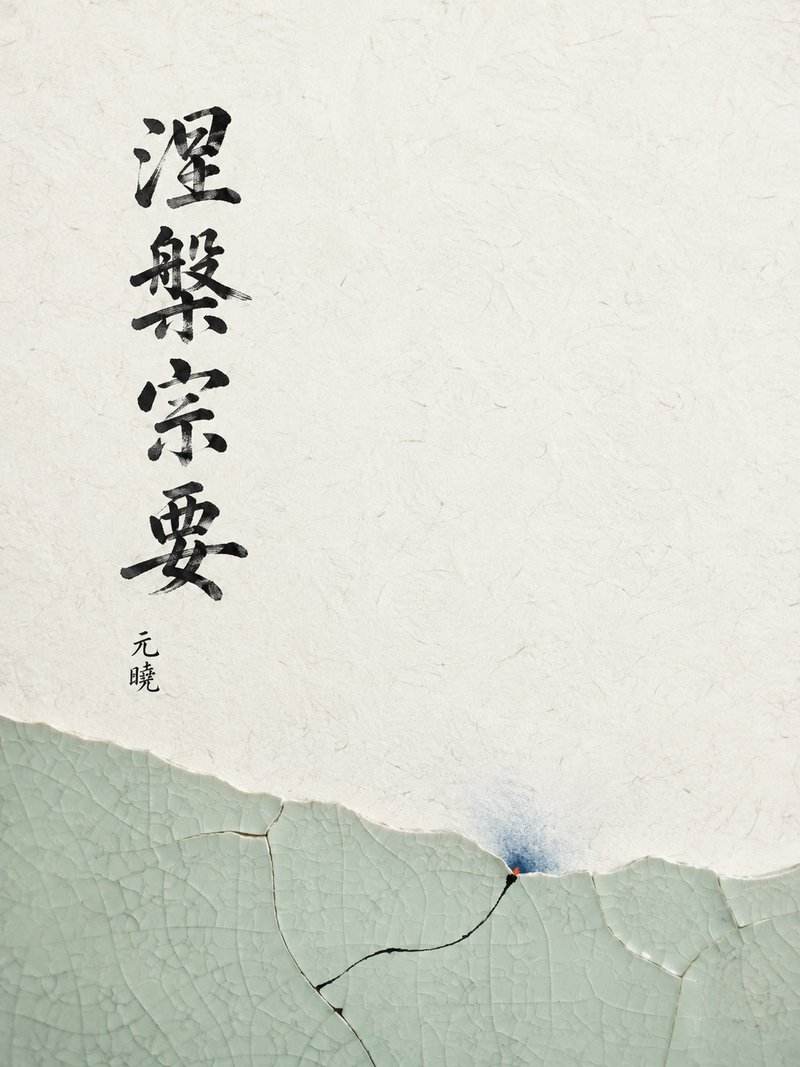 涅槃宗要
元曉